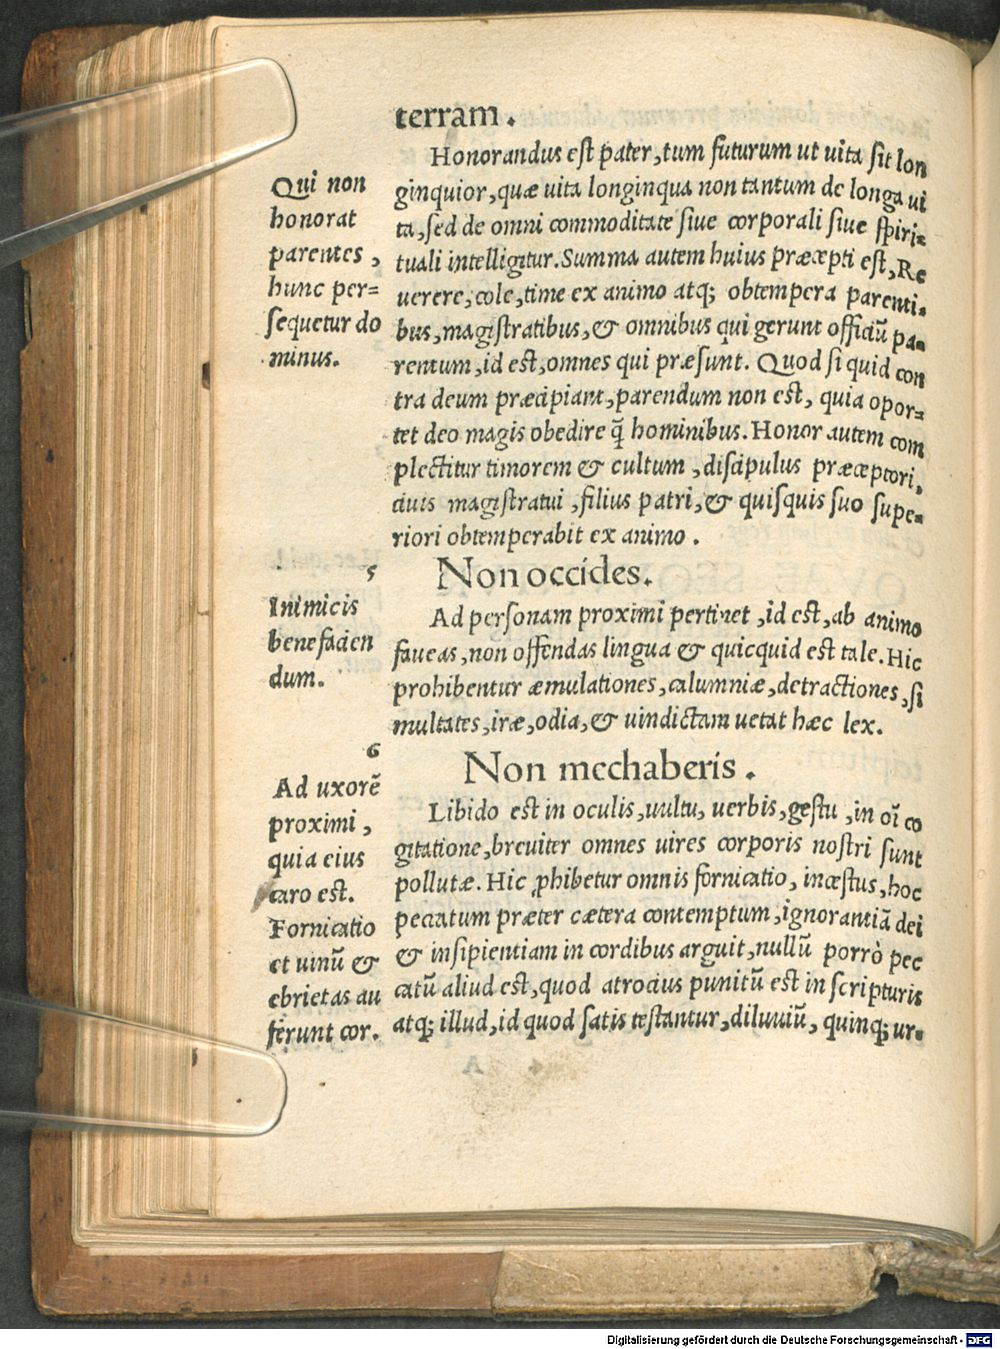 terram.
Honorandus est pater, tum futurum ut uita sit lon
ginquior, quæ uita longinqua non tantum de longa ui
ta, sed de omni commoditate siue corporali siue spiri=
tuali intelligitur. Summa autem huius præcepti est, Re
uerere, cole, time ex animo atq; obtempera parenti=
bus, magistratibus, & omnibus qui gerunt officiũ pa=
rentum, id est, omnes qui præsunt. Quod si quid con
tra deum præcipiant, parendum non est, quia opor=
tet deo magis obedire q̃ hominibus. Honor autem com
plectitur timorem & cultum, discipulus præceptori,
ciuis magistratui, filius patri, & quisquis suo supe=
riori obtemperabit ex animo.
Qui non
honorat
parentes,
hunc per=
sequetur do
minus.
5
Non occides.
Ad personam proximi pertinet, id est, ab animo
faueas, non offendas lingua & quicquid est tale. Hic
prohibentur æmulationes, calumniæ, detractiones, si
multates, iræ, odia, & uindictam uetat hæc lex.
Inimicis
benefacien
dum.
6
Non mechaberis.
Libido est in oculis, uultu, uerbis, gestu, in oĩ co
gitatione, breuiter omnes uires corporis nostri sunt
pollutæ. Hic ꝓhibetur omnis fornicatio, incestus, hoc
peccatum præter cætera contemptum, ignorantiã dei
& insipientiam in cordibus arguit, nullũ porrò pec
catũ aliud est, quod atrocius punitũ est in scripturis
atq; illud, id quod satis testantur, diluuiũ, quinq; ur=
Ad uxorẽ
proximi,
quia eius
caro est.
Fornicatio
et uinũ &
ebrietas au
ferunt cor.
Digitalisierung gefördert durch die Deutsche Forschungsgemeinschaft - DFG